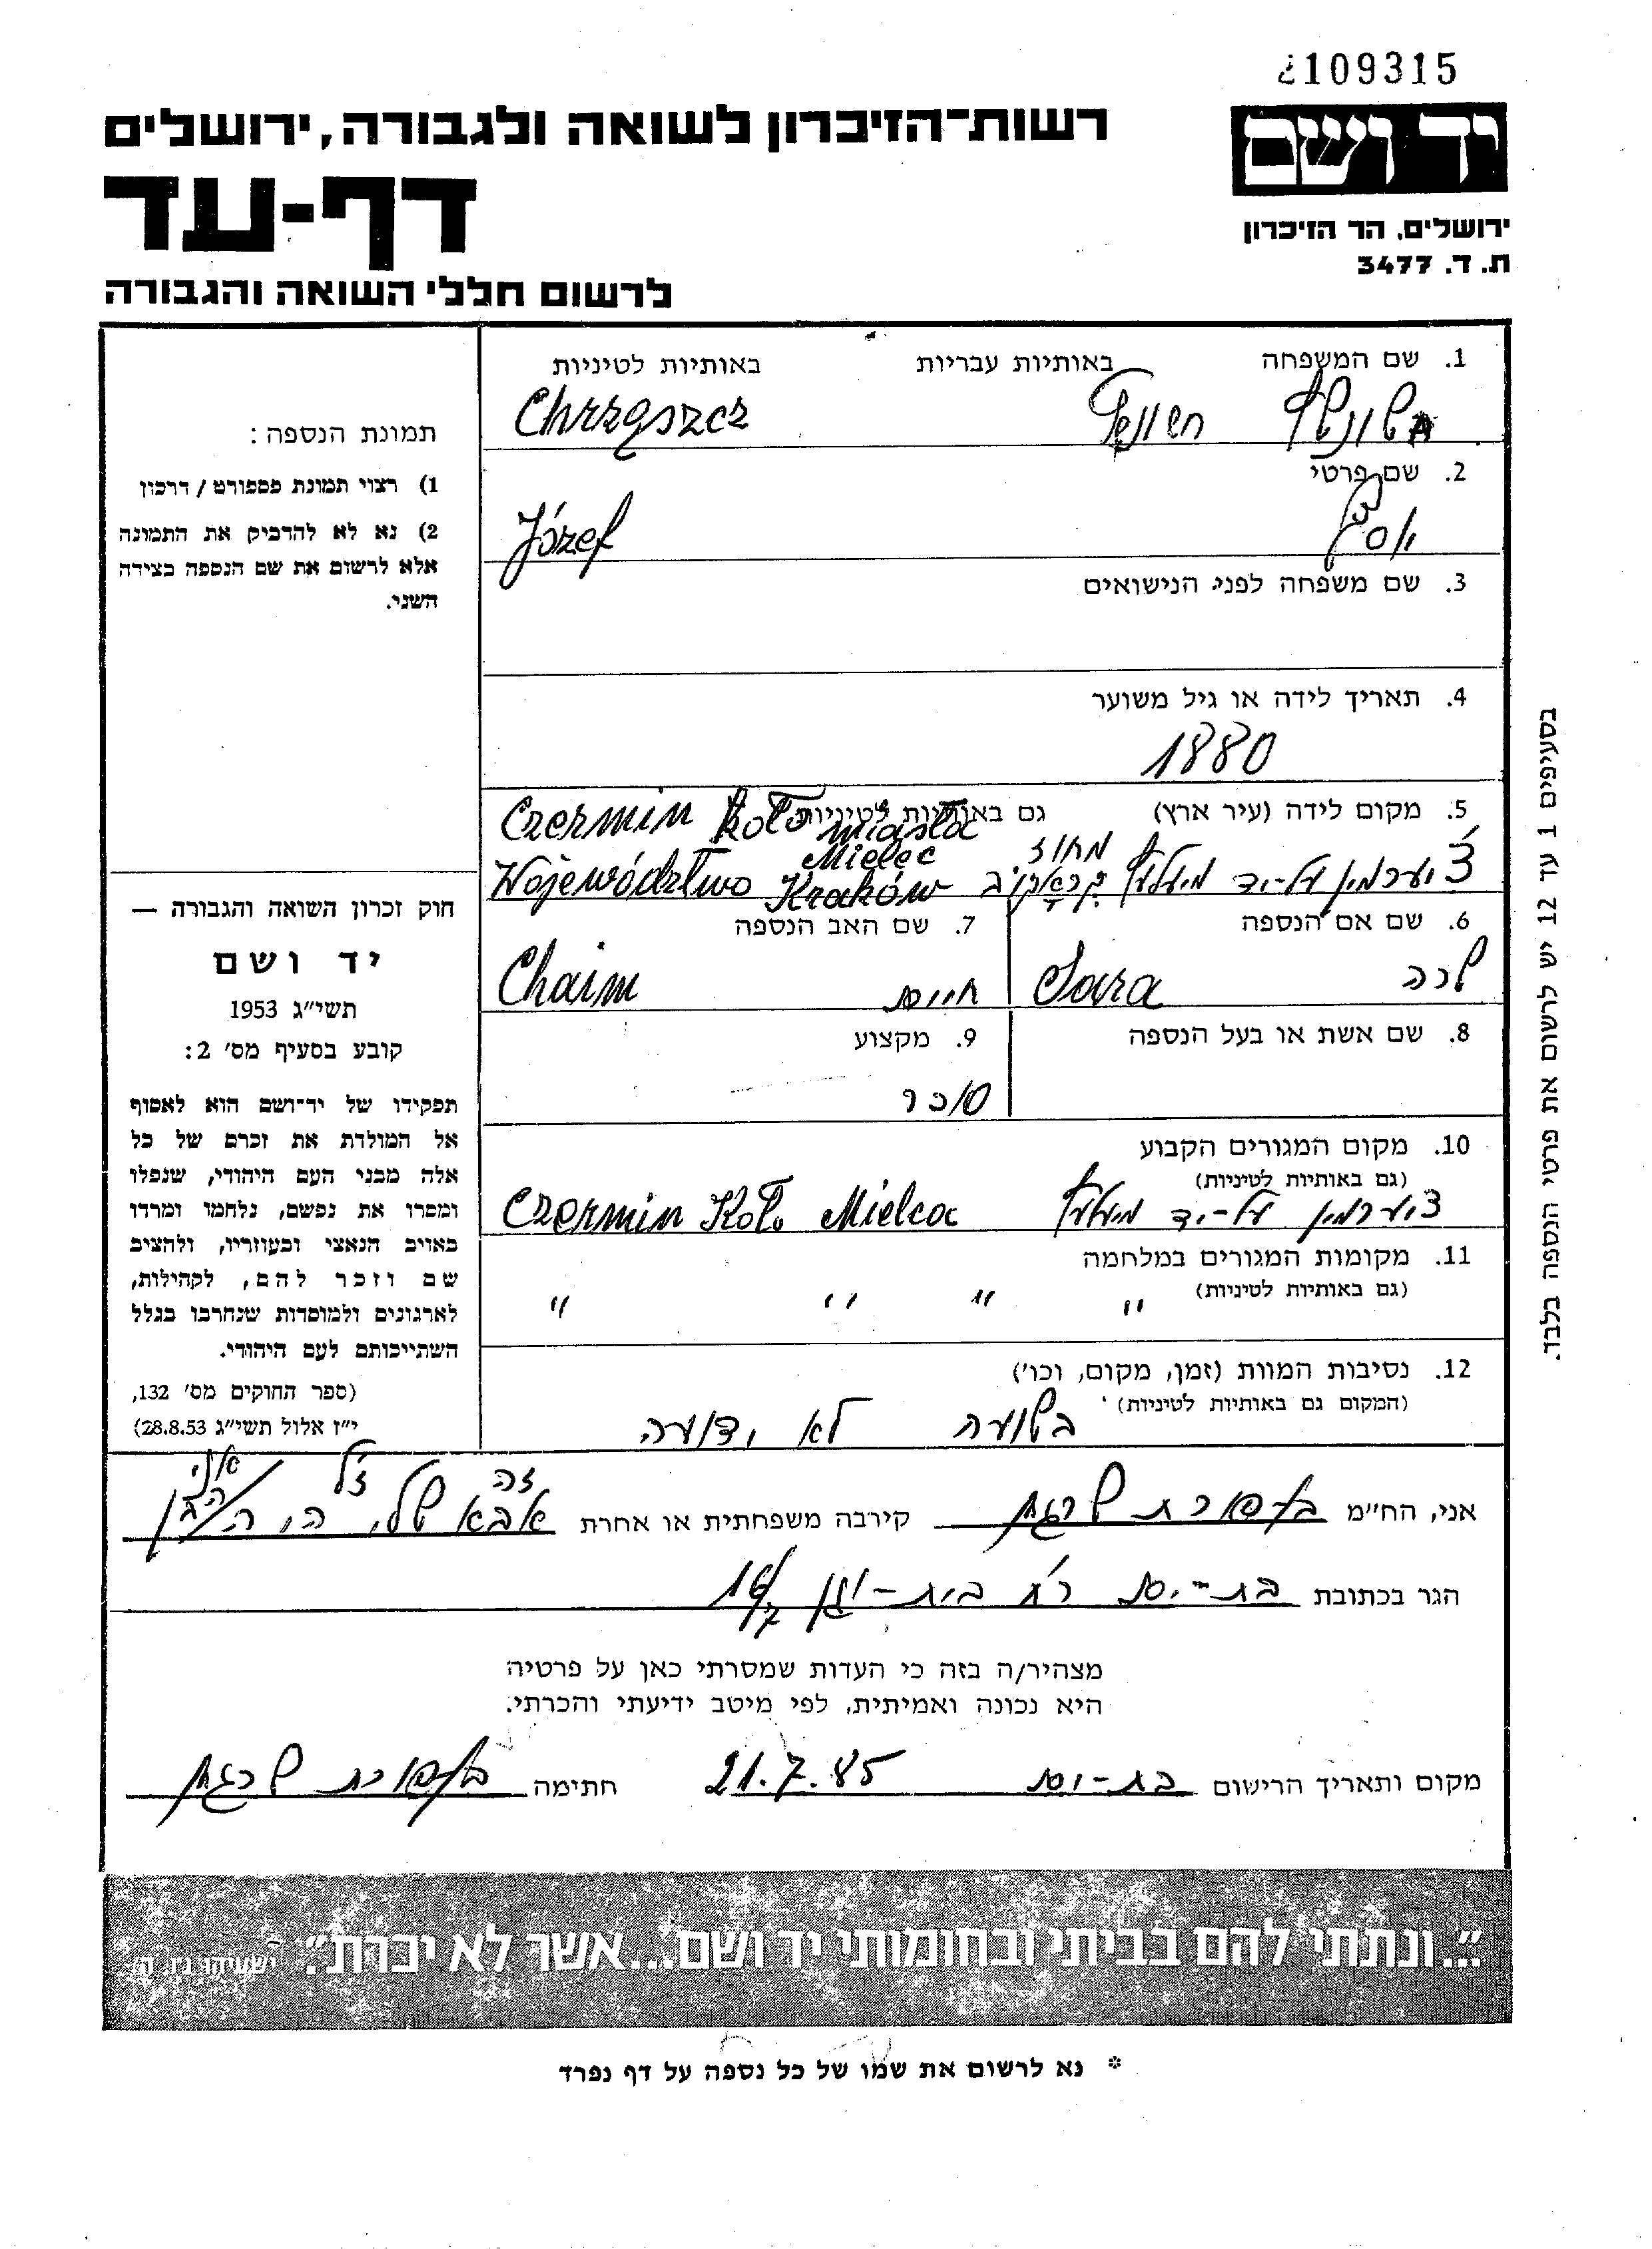 109315
יד ושם
ירושלים, הר הזיכרון
ת. ד. 3477
רשות־הזיכרון לשואה ולגבורה, ירושלים
דף-עד
לרשום חללי השואה והגבורה
1. שם המשפחה באותיות עבריות באותיות לטיניות
Chrząszcz
2. שם פרטי
יוסף Józef
3. שם משפחה לפני הנישואים
4. תאריך לידה או גיל משוער
1880
5. מקום לידה (עיר ארץ) גם באותיות לטיניות
Czermin koło miasta
Mielec
מחוז
Województwo Kraków
על-יד
6. שם אם הנספה
שרה Sara
7. שם האב הנספה
חיים Chaim
8. שם אשת או בעל הנספה
9. מקצוע
סוחר
10. מקום המגורים הקבוע
(גם באותיות לטיניות)
על-יד Czermin Koło Mielca
11. מקומות המגורים במלחמה
(גם באותיות לטיניות)
" " " "
12. נסיבות המוות (זמן, מקום, וכו')
(המקום גם באותיות לטיניות)
בשואה לא ידוע
תמונת הנספה:
1) רצוי תמונת פספורט / דרכון
2) נא לא להדביק את התמונה
אלא לרשום את שם הנספה בצידה
השני.
חוק זכרון השואה והגבורה —
יד ושם
תשי״ג 1953
קובע בסעיף מס׳ 2:
תפקידו של יד־ושם הוא לאסוף
אל המולדת את זכרם של כל
אלה מבני העם היהודי, שנפלו
ומסרו את נפשם, נלחמו ומרדו
באויב הנאצי ובעוזריו, ולהציב
שם וזכר להם, לקהילות,
לארגונים ולמוסדות שנחרבו בגלל
השתייכותם לעם היהודי.
(ספר החוקים מס׳ 132,
י״ז אלול תשי״ג 28.8.53)
בסעיפים 1 עד 12 יש לרשום את פרטי הנספה בלבד.
אני, הח״מ קירבה משפחתית או אחרת זה אבא שלי ז"ל אני הבן
הגר בכתובת בת-ים רח' בית-וגן
מצהיר/ה בזה כי העדות שמסרתי כאן על פרטיה
היא נכונה ואמיתית, לפי מיטב ידיעתי והכרתי.
מקום ותאריך הרישום בת-ים 21.7.85 חתימה
"...ונתתי להם בביתי ובחומותי יד ושם...אשר לא יכרת". ישעיהו נו, ה
* נא לרשום את שמו של כל נספה על דף נפרד